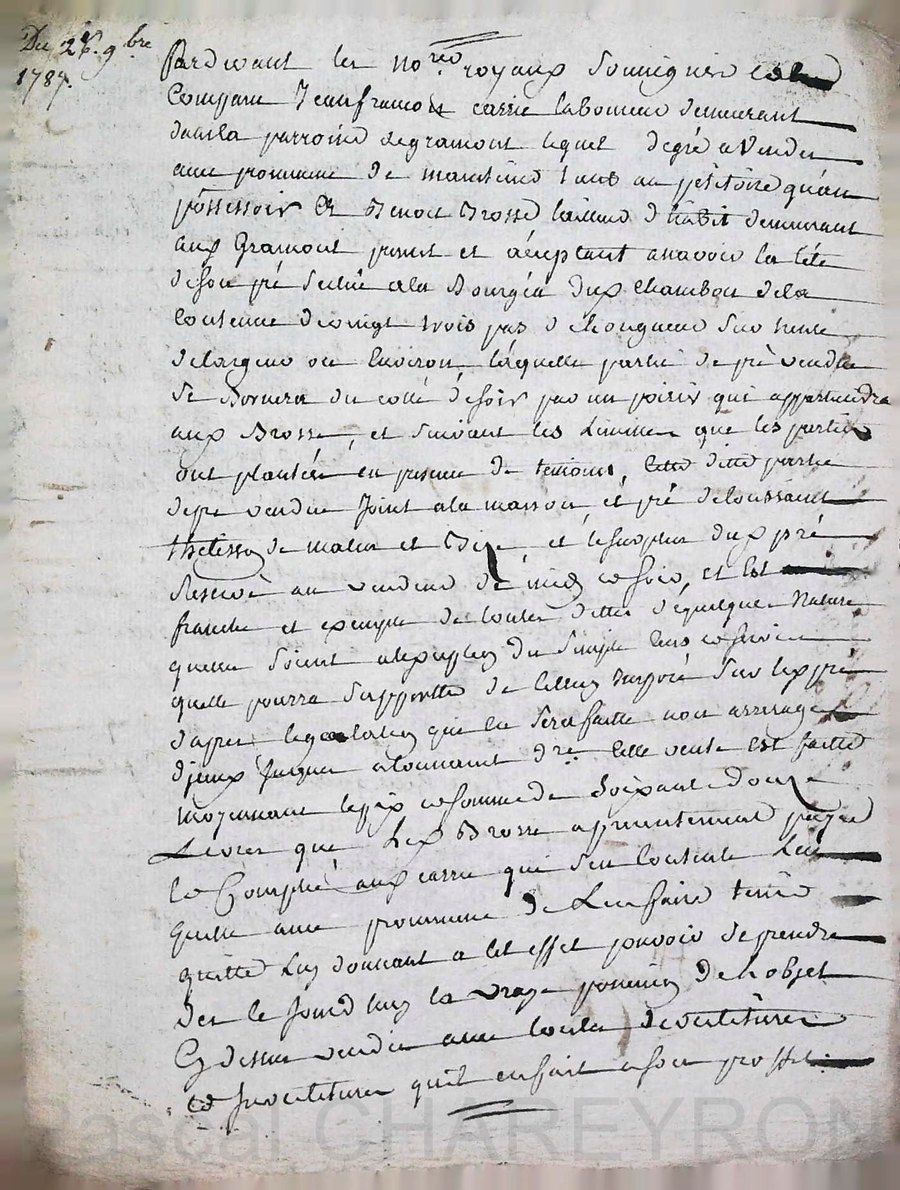 Du 26. 9bre
1787.
Pardevant les nores royaux soussignés est
Comparu Jean francois carrie laboureur demeurant
dans la parroisse degramont lequel de gré a Vendu
avec promesse de maintenir tant au pétitoire quau
possessoir a Benoit Brosse tailleur d'habit demeurant
aux Gramont present et acceptant assavoir la tête
deson pré scitué ala Bourgéa dud Chambon dela
Contenue devingt trois pas de Longueur sur trente
delargeur ou Environ, laquelle partie de pré vendue
se Bornera du cotté desoir par un que appartiendra
aud Brosse, et suivant les Limittes que les parties
ont plantées en presence de temoins, Cette ditte partie
depré vendue Joint ala maison et pré detoussaint
de matin et Bize, et lesurplus dud pré
Reservé au vendeur de midy et soir, et Est
franche et exempte de toutes dettes dequelque Nature
quelle soient alexception du simple cens et servis
quelle pourra supporter de Celluy Imposé sur led pré
dapres legalation que en sera faitte non arrerages
d'jceux Jusques alouvrant dre. Cette vente Est faitte
moyennant leprix et somme de soixante douze
Livres que Led Brosse a presentement payée
et Comptée aud carrie qui sen Contente Len
quitte avec promesse de Len faire tenir
quitte Luy donnant a Cet effet pouvoir de prendre
des le Jourd'huy la vraye possession de Lobjet
Cy dessus vendu avec toutes devestitures
et Jnvestitures qu'il en fait a son proffit.
Pascal CHAREYRON